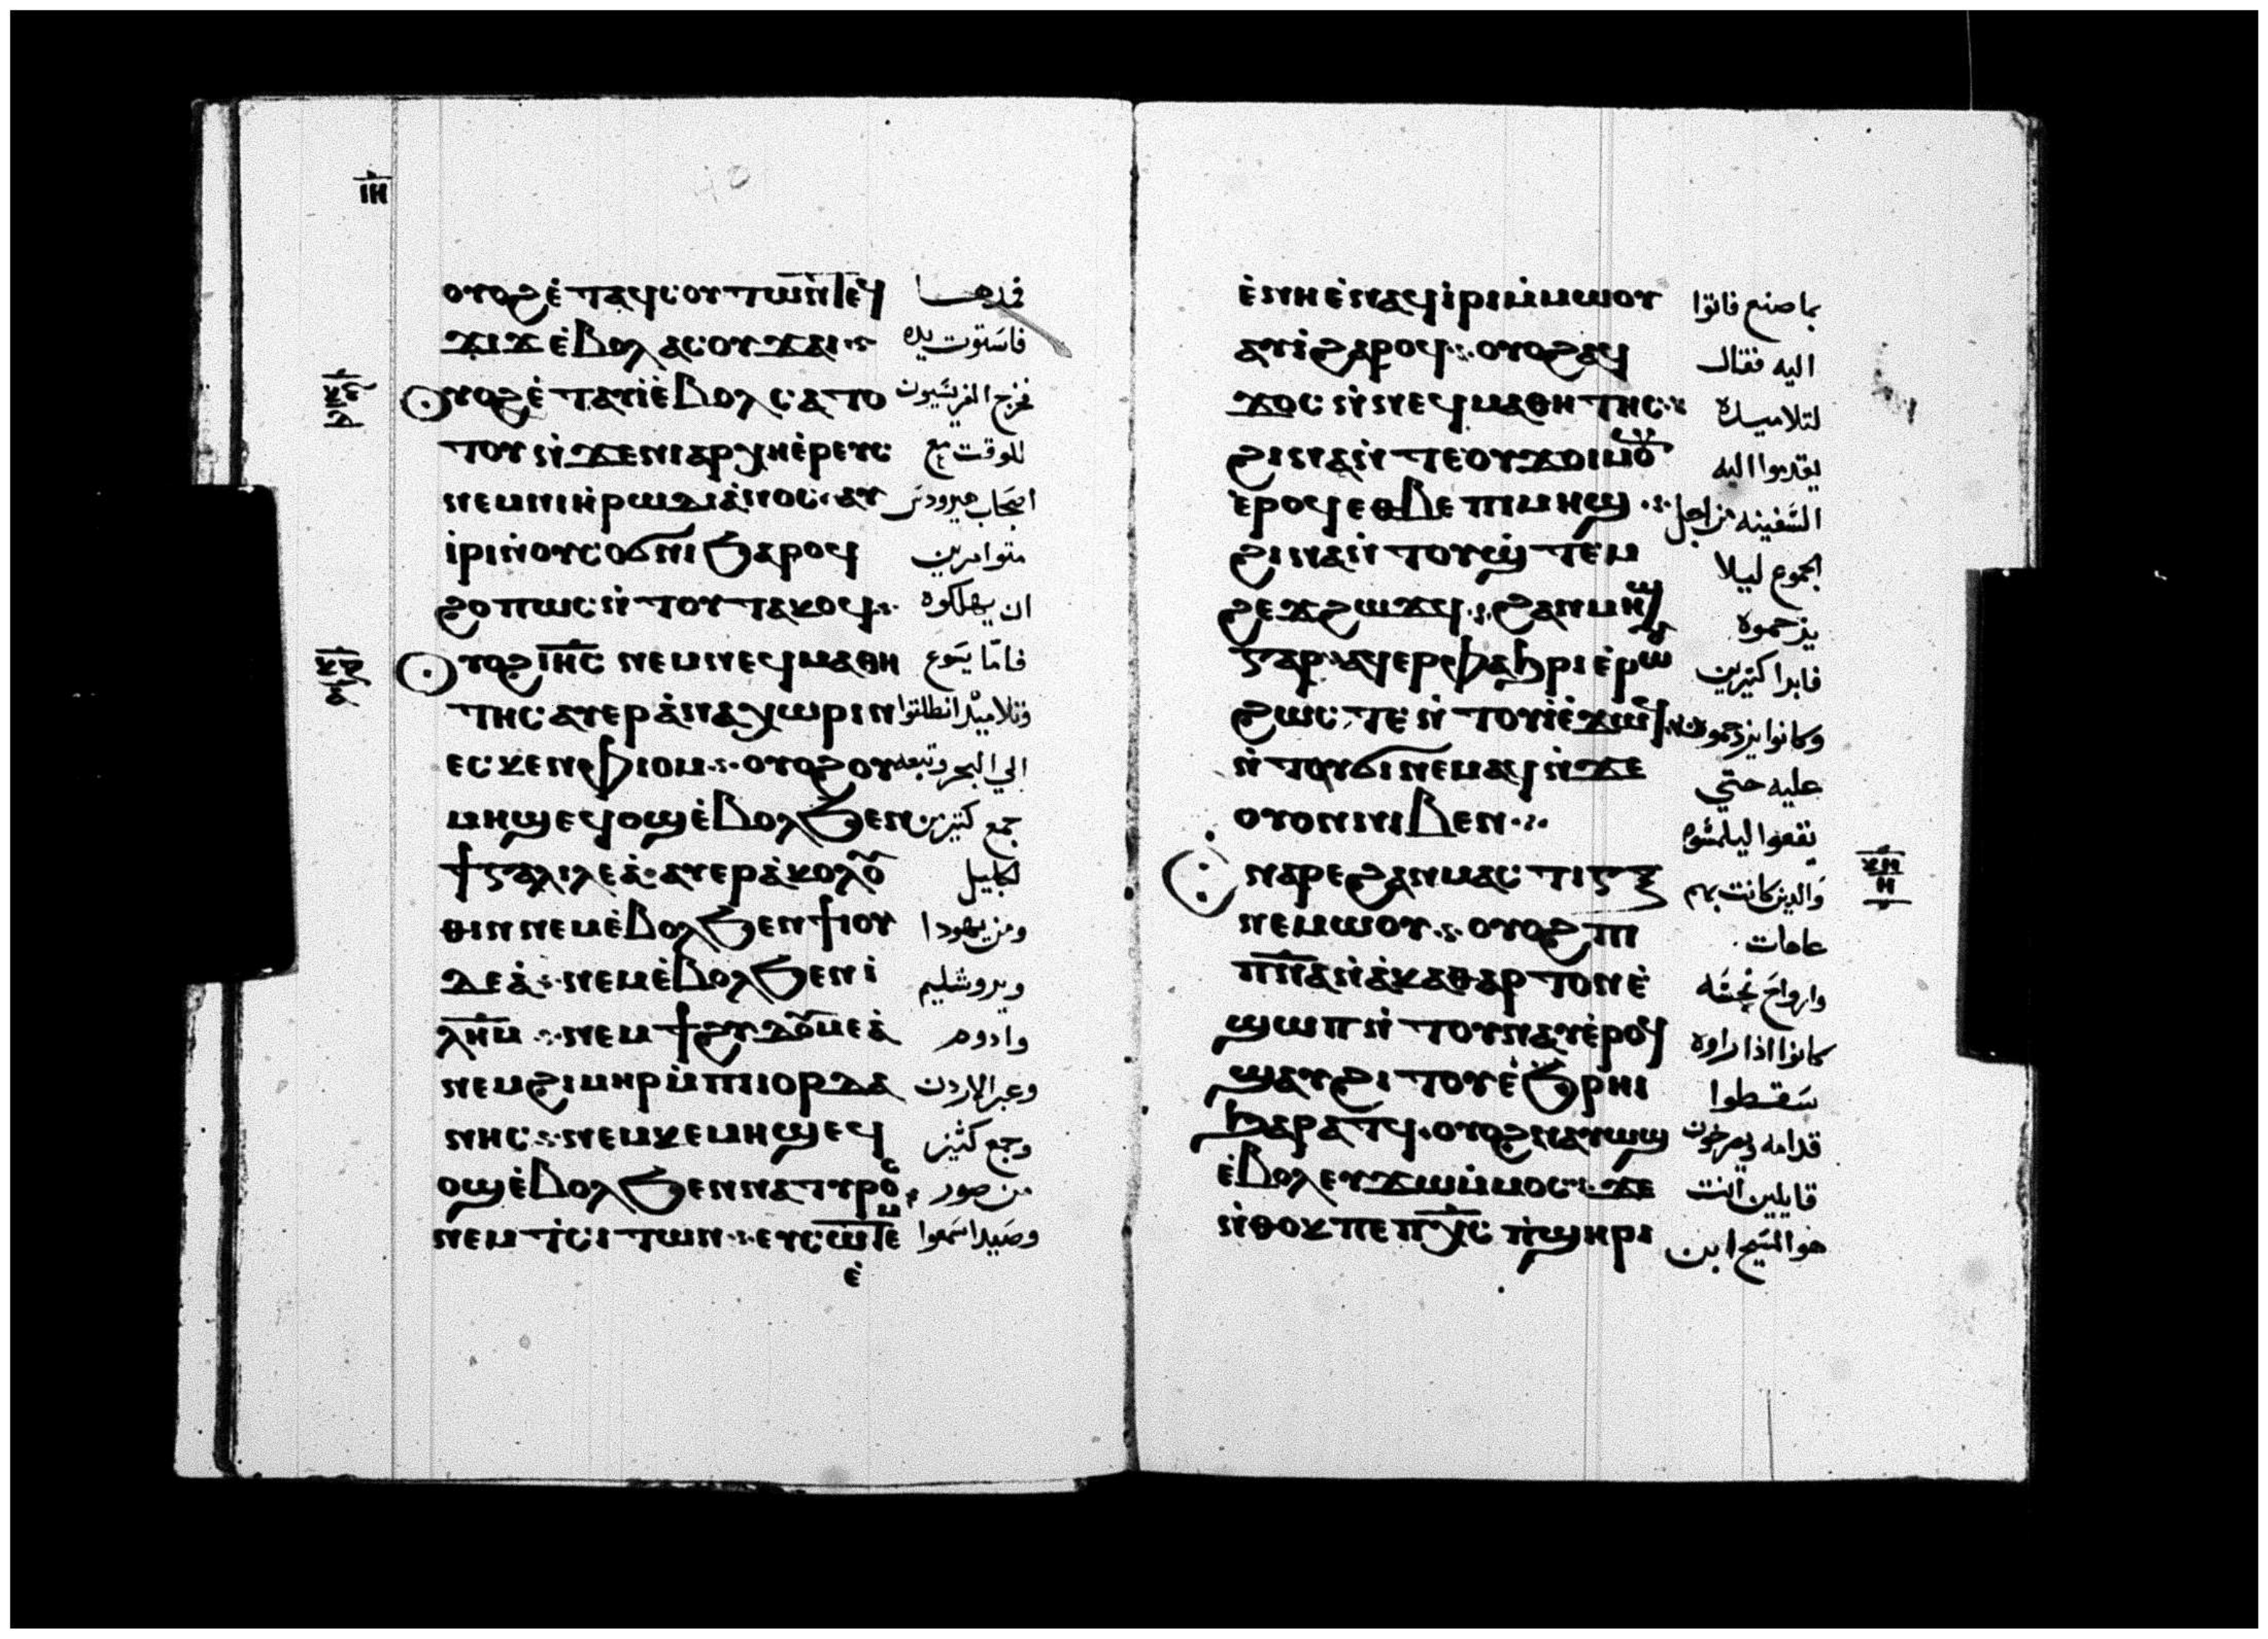 ⲓⲏ
ⲟⲩⲟϩ ⲉ̇ⲧⲁϥⲥⲟⲩⲧⲱⲛ ⲧⲉϥ فمدها
ϫⲓϫ ⲉ̇ⲃⲟⲗ ⲁⲥⲟⲩϫⲁⲓ فاستوت يده
ⲟⲩⲟϩ ⲉ̇ⲧⲁⲩⲓ̇ ⲉ̇ⲃⲟⲗ ⲥⲁⲧⲟ فخرج الفريسيون
ⲧⲟⲩ ⲛ̇ϫⲉⲛⲓⲁⲣⲭⲏⲉ̇ⲣⲉⲩⲥ للوقت مع
ⲛⲉⲙⲛⲓⲏ̇ⲣⲱⲇⲓⲁ̇ⲛⲟⲥ ⲁⲩ اصحاب هيرودس
ⲓ̇ⲣⲓ ⲛ̇ⲟⲩⲥⲟϭⲛⲓ ϧⲁⲣⲟϥ متوامرين
ϩⲟⲡⲱⲥ ⲛ̇ⲧⲟⲩⲧⲁⲕⲟϥ ان يهلكوه
ⲟⲩⲟϩ ⲓⲏⲥ ⲛⲉⲙⲛⲉϥⲙⲁⲑⲏ فاما يسوع
ⲧⲏⲥ ⲁⲩⲉⲣⲁ̇ⲛⲁⲭⲱⲣⲓⲛ وتلاميذه انطلقوا
ⲉⲥⲕⲉⲛ ⲫⲓⲟⲙ ⲟⲩⲟϩ ⲟⲩ الي البحر وتبعه
ⲙⲏϣ ⲉϥⲟϣ ⲉ̇ⲃⲟⲗ ϧⲉⲛ جمع كثير من
ϯⲅⲁⲗⲓⲗⲉⲁ̇ ⲁⲩⲉⲣⲁ̇ⲕⲟⲗⲟ الجليل
ⲑⲓⲛ ⲛⲉⲙ ⲉ̇ⲃⲟⲗ ϧⲉⲛ ϯⲓⲟⲩ ومن يهودا
ⲇⲉⲁ̇ ⲛⲉⲙ ⲉ̇ⲃⲟⲗ ϧⲉⲛ ⲓ̇ ويروشليم
ⲗⲏⲙ ⲛⲉⲙ ϯϩⲩⲇⲟⲩⲙⲉⲁ̇ وادوم
ⲛⲉⲙ ϩⲓⲙⲏⲣ ⲙ̇ⲡⲓⲓⲟⲣⲇⲁ وعبر الاردن
ⲛⲏⲥ ⲛⲉⲙ ⲕⲉⲙⲏϣ ⲉϥ وجمع كثير
ⲟϣ ⲉ̇ⲃⲟⲗ ϧⲉⲛ ⲛⲁⲧⲩⲣⲟⲥ من صور
ⲛⲉⲙ ⲧⲥⲓⲧⲱⲛ ⲉⲩⲥⲱⲧⲉⲙ وصيدا سمعوا
ⲉ̇
ⲉ̇ⲛⲏ ⲉ̇ⲛⲁϥⲓ̇ⲣⲓ ⲙ̇ⲙⲱⲟⲩ بما صنع فاتوا
ⲁⲩⲓ̇ ϩⲁⲣⲟϥ ⲟⲩⲟϩ ⲁϥ اليه فقال
ϫⲟⲥ ⲛ̇ⲛⲉϥⲙⲁⲑⲏⲧⲏⲥ لتلاميذه
ϩⲓⲛⲁ ⲛ̇ⲧⲉ ⲟⲩϫⲟⲓ ⲙⲟⲩⲛ يقدموا اليه
ⲉ̇ⲣⲟϥ ⲉⲑⲃⲉ ⲡⲓⲙⲏϣ السفينه من اجل
ϩⲓⲛⲁ ⲛ̇ⲧⲟⲩϣ̇ⲧⲉⲙ الجموع ليلا
ϩⲉϫϩⲱϫϥ ϩⲁⲛⲙⲏϣ يزحموه
ⲅⲁⲣ ⲁϥⲉⲣⲫⲁϧⲣⲓ ⲉ̇ⲣⲱⲟⲩ فابرا كثيرين
ϩⲱⲥⲧⲉ ⲛ̇ⲧⲟⲩⲓ̇ ⲉ̇ϫⲱϥ وكانوا يزدحمون
ⲛ̇ⲧⲟⲩϭⲓ ⲛⲉⲙⲁϥ ⲛ̇ϫⲉ عليه حتي
ⲟⲩⲟⲛ ⲛⲓⲃⲉⲛ يقعوا ليلمسوه
ⲛⲁⲣⲉ ϩⲁⲛⲙⲁⲥⲧⲓⲅⲝ والذين كانت بهم
ⲛⲉⲙⲱⲟⲩ ⲟⲩⲟϩ ⲡⲓ عاهات
ⲡⲛⲁ ⲛ̇ⲁ̇ⲕⲁⲑⲁⲣⲧⲟⲛ ⲉ̇ وارواح نجسه
ϣⲱⲡ ⲛ̇ⲧⲟⲩⲛⲁⲩ ⲉ̇ⲣⲟϥ كانوا اذا راوه
ϣⲁⲩϩⲓⲧⲟⲩ ⲉ̇ϧⲣⲏⲓ سقطوا
ϧⲁⲣⲁⲧϥ ⲟⲩⲟϩ ⲛⲁⲩⲱϣ قدامه ويصرخون
ⲉ̇ⲃⲟⲗ ⲉⲩϫⲱ ⲙ̇ⲙⲟⲥ ϫⲉ قايلين انت
ⲛ̇ⲑⲟⲕ ⲡⲉ ⲡⲭⲥ ⲡ̇ϣⲏⲣⲓ هو المسيح ابن
ⲕⲏ
ⲏ